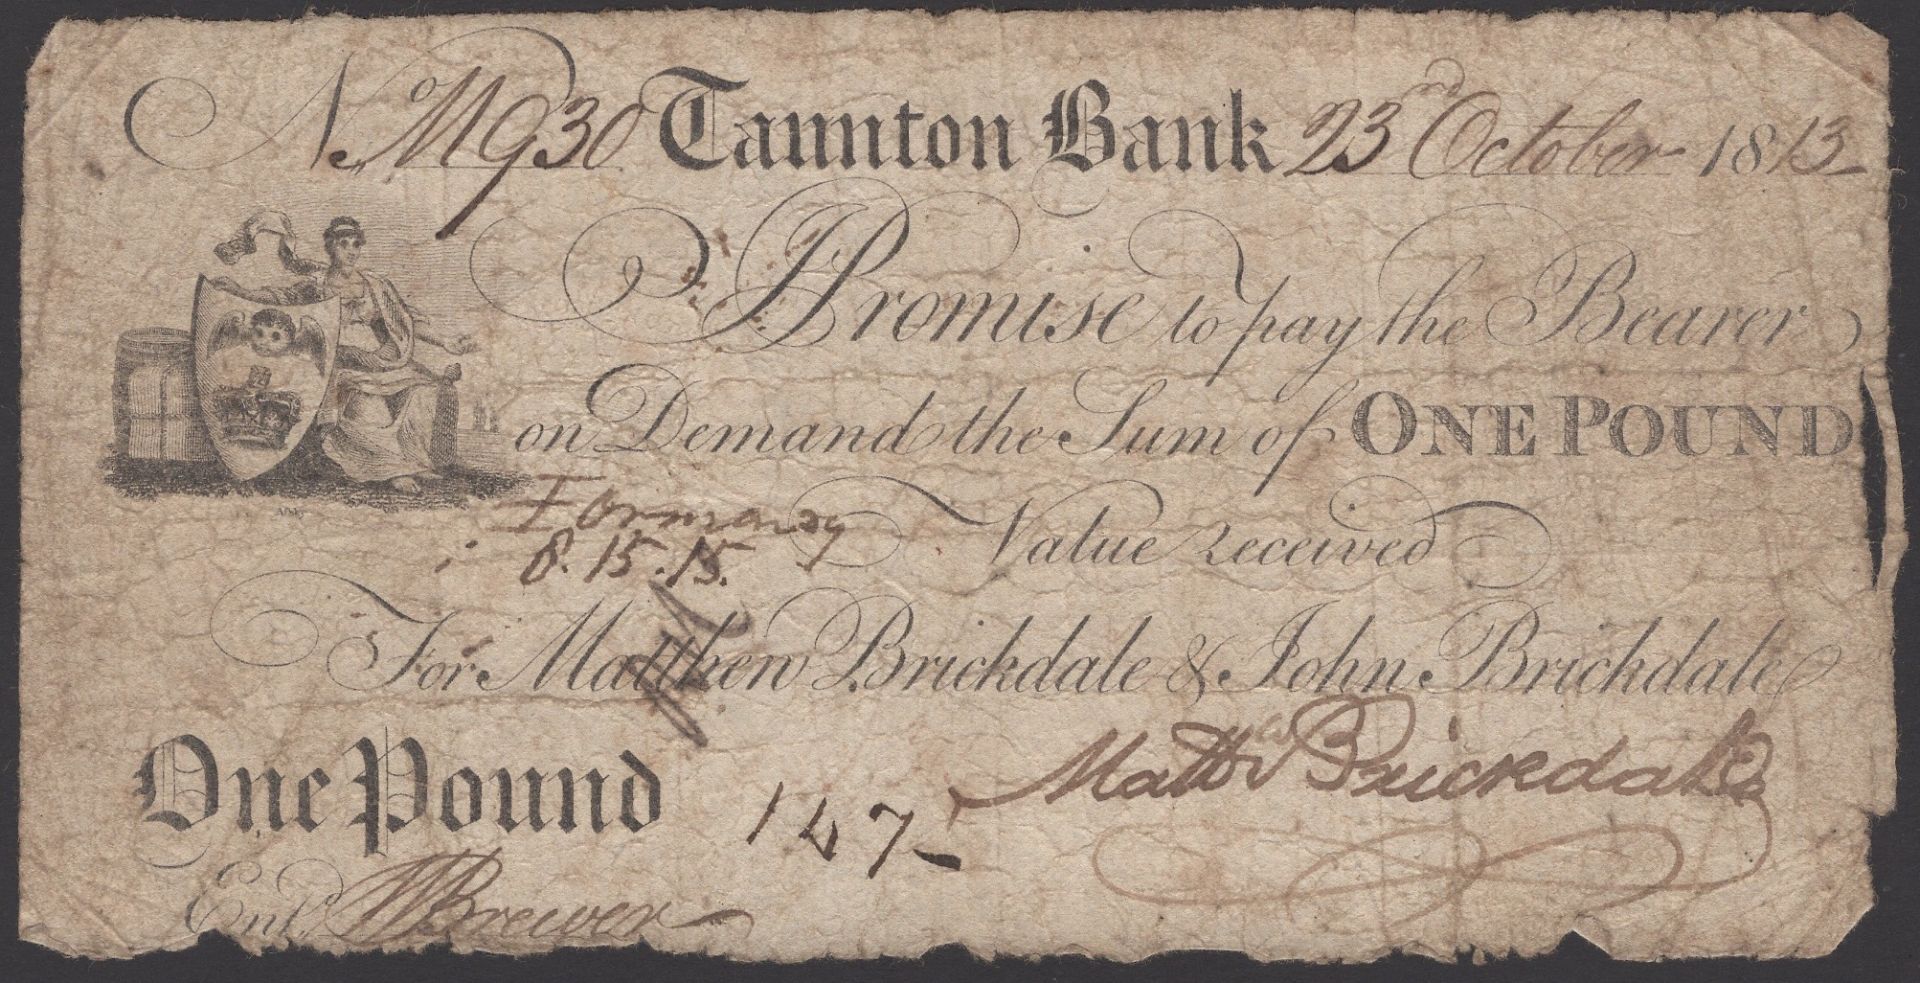 No M930 Taunton Bank 23rd October 1813
I Promise to pay the Bearer
on Demand the Sum of ONE POUND
Value received
8.15.15.
For Matthew Brickdale & John Brickdale
Mattw Brickdale
One Pound
147
Entd. W Brewer